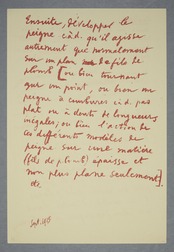 Ensuite, développer le
peigne c.à.d. qu'il agisse
autrement que normalement
sur un plan de fils de
plomb [ou bien tournant
sur un point, ou bien un
peigne à courbures c.à.d. pas
plat ou à dents de longueurs
inégales; ou bien l'action de
ces différents modèles de
peigne sur une matière
(fils de plomb) épaisse et
non plus plane seulement].
etc.
Sept. 1915